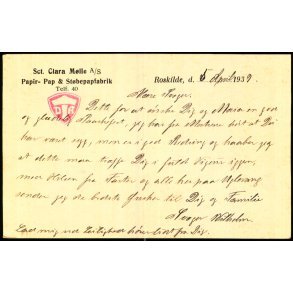 Sct. Clara Mølle A/S
Papir- Pap & Støbepapfabrik
Telf. 40
Roskilde, d. 5 April 1939.
Kære Svoger.
Dette for at ønske Dig og Maria en god
og glædelig Paaskefest, jeg har fra Mutter hørt at Du
har været syg, men er i god Bedring og haaber jeg
at dette maa træffe Dig i fuld Vigeur igen,
med Hilsen fra Faster og alle her paa
sender jeg de bedste Ønsker til Dig og Familie
Svoger Wilhelm
Lad mig ved Lejlighed høre lidt fra Dig.